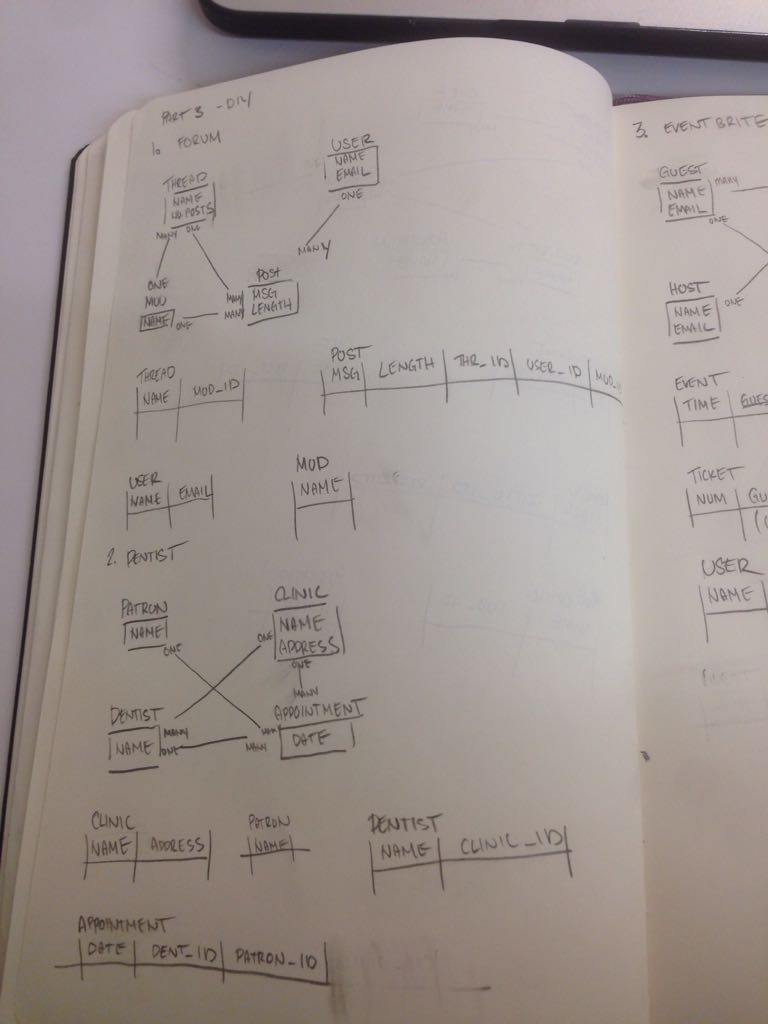 PART 3 - DIY
1. FORUM
THREAD
NAME
NO. POSTS
MANY ONE
USER
NAME
EMAIL
ONE
MANY
ONE
MOD
NAME
ONE
POST
MSG
LENGTH
MANY
MANY
THREAD
NAME MOD_ID
POST
MSG LENGTH THR_ID USER_ID MOD_I
USER
NAME EMAIL
MOD
NAME
2. DENTIST
PATRON
NAME
ONE
CLINIC
NAME
ADDRESS
ONE
ONE
MANY
DENTIST
NAME
MANY
ONE
APPOINTMENT
DATE
MANY
CLINIC
NAME ADDRESS
PATRON
NAME
DENTIST
NAME CLINIC_ID
APPOINTMENT
DATE DENT_ID PATRON_ID
3. EVENTBRITE
GUEST
NAME
EMAIL
MANY
ONE
HOST
NAME
EMAIL
ONE
EVENT
TIME GUES
TICKET
NUM GU
USER
NAME